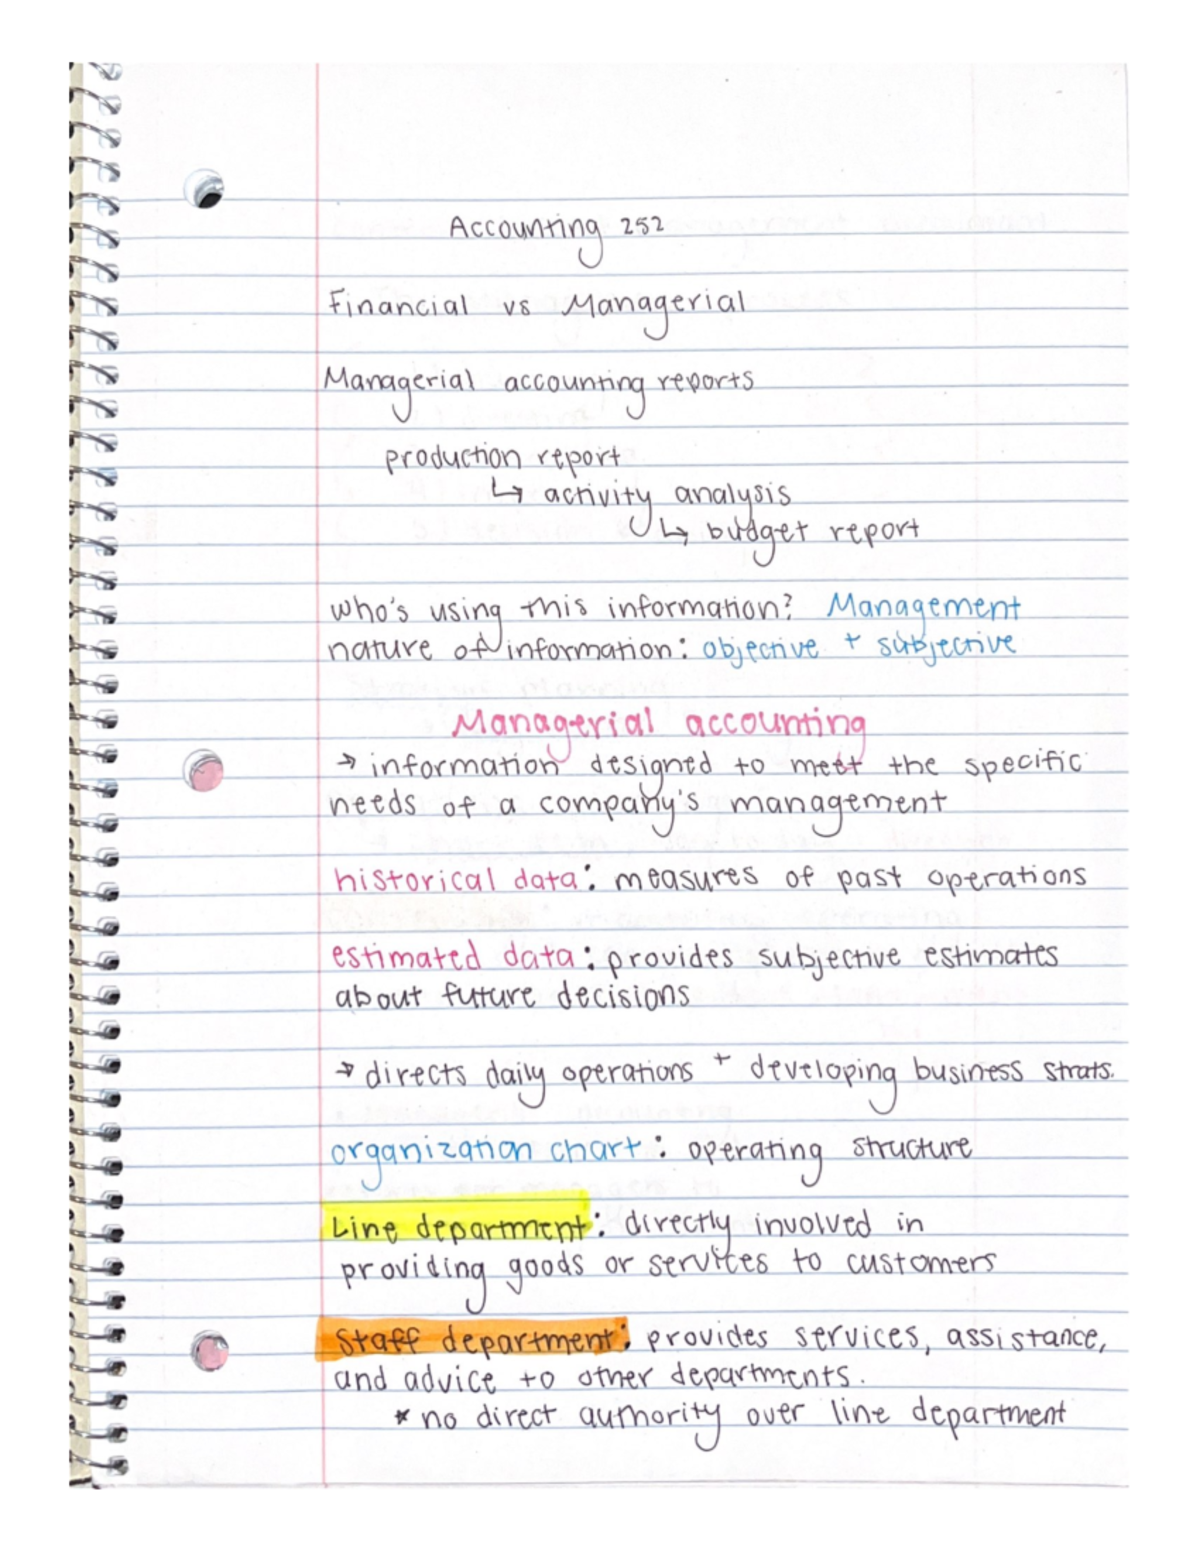 Accounting 252
Financial vs Managerial
Managerial accounting reports
production report
↳ activity analysis
↳ budget report
who's using this information? Management
nature of information: objective + subjective
Managerial accounting
→ information designed to meet the specific
needs of a company's management
historical data: measures of past operations
estimated data: provides subjective estimates
about future decisions
→ directs daily operations + developing business strats.
organization chart: operating structure
Line department: directly involved in
providing goods or services to customers
Staff department: provides services, assistance,
and advice to other departments.
* no direct authority over line department